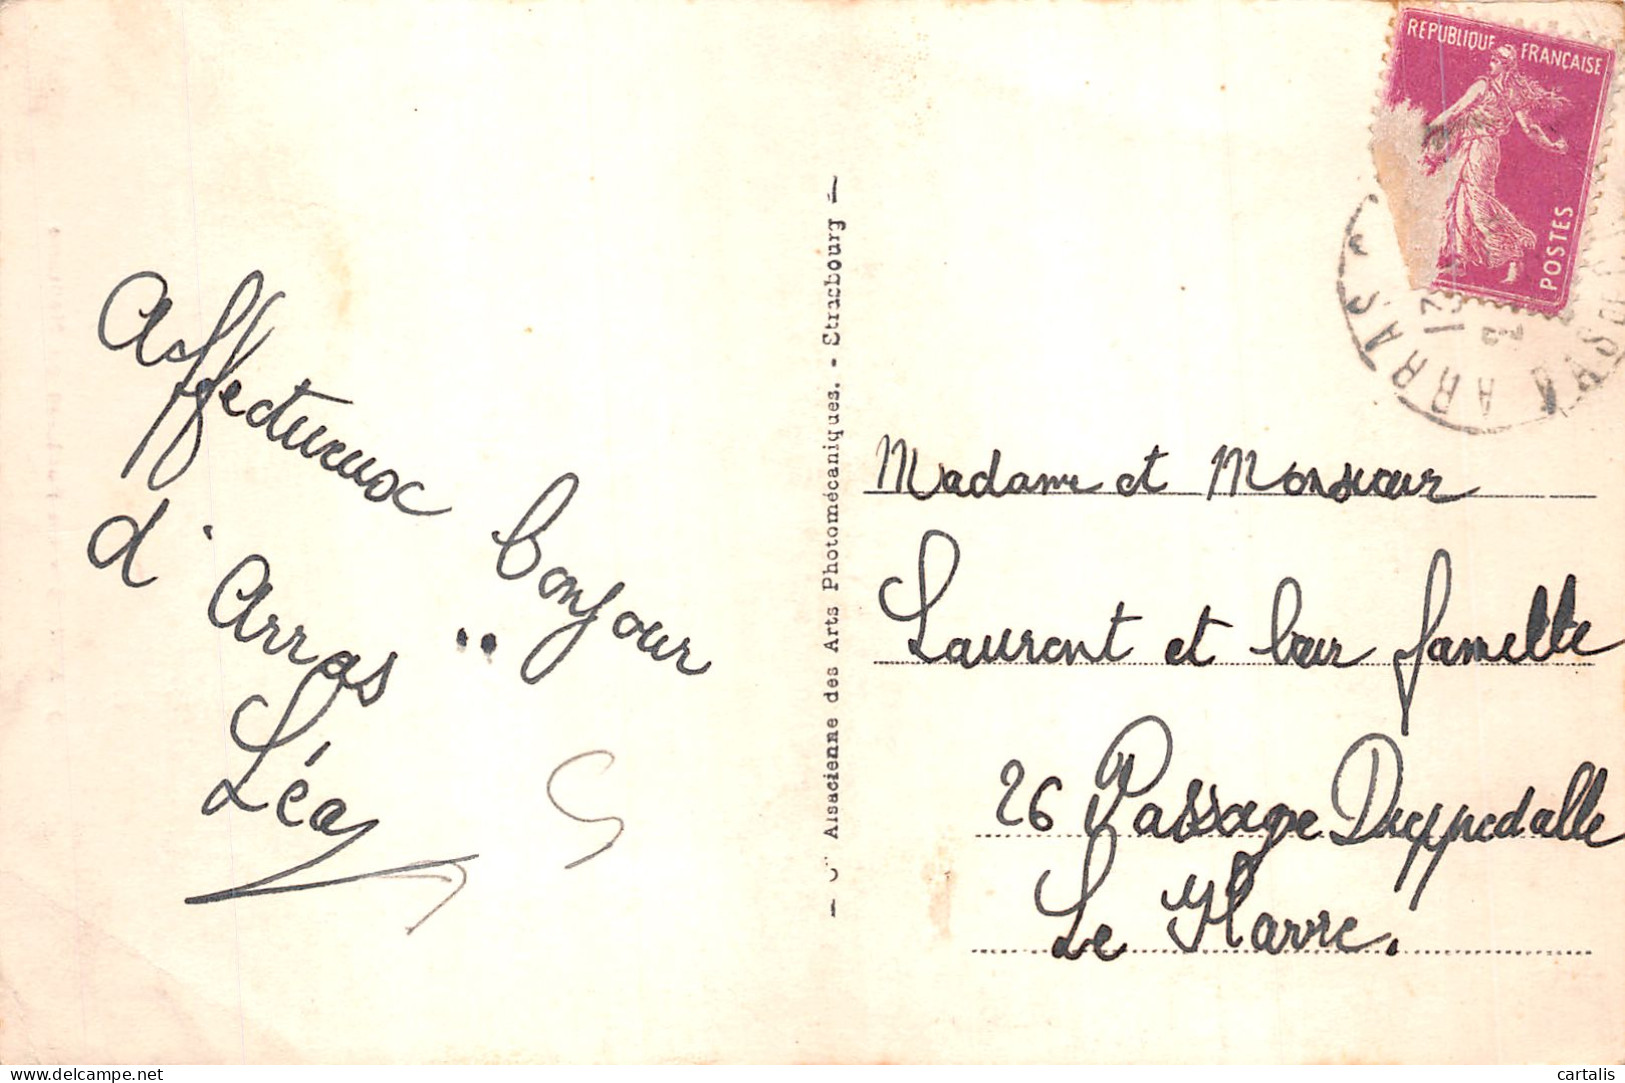 Affectueux bonjour
d'Arras..
Léa
— Cie Alsacienne des Arts Photomécaniques. - Strasbourg —
REPUBLIQUE FRANÇAISE
POSTES
ARRAS
Madame et Monsieur
Laurent et leur famille
26 Passage Dieppedalle
Le Havre.
cartalis